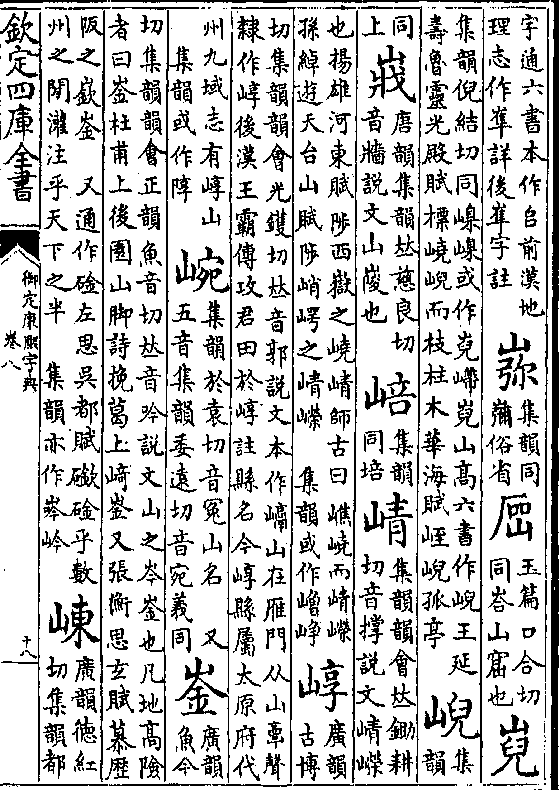 字通六書本作前漢地
理志作崋詳後崋字註
集韻同
俗省
玉篇口合切
同峇山窟也
集韻倪結切同嵲嵲或作山高六書作王延
壽魯靈光殿賦摽嶢而枝柱木華海賦峌孤亭
集
韻
同
上
唐韻集韻𠀤慈良切
音牆說文山也
集韻
同培
崝
集韻韻會𠀤鋤耕
切音撑說文崝嶸
也揚雄河東賦陟西嶽之嶢崝師古曰嶕嶢而崝嶸
孫綽遊天台山賦陟峭崿之崝嶸 集韻或作嶒崢
崞
廣韻
古博
切集韻韻會光鑊切𠀤音郭說文本作山在雁門从山聲
隸作崞後漢王霸傳攻君田於崞註縣名今崞縣屬太原府代
州九域志有崞山
集韻或作障
集韻於袁切音冤山名 又
五音集韻委遠切音宛義同
崟
廣韻
魚今
切集韻韻會正韻魚音切𠀤音吟說文山之岑崟也凡地高險
者曰崟杜甫上後園山脚詩挽葛上崎崟又張衡思玄賦慕歷
阪之嶔崟 又通作左思吳都賦乎數
州之間灌注乎天下之半 集韻亦作
崠
廣韻德紅
切集韻都
欽定四庫全書
御定康熙字典
卷八
十八